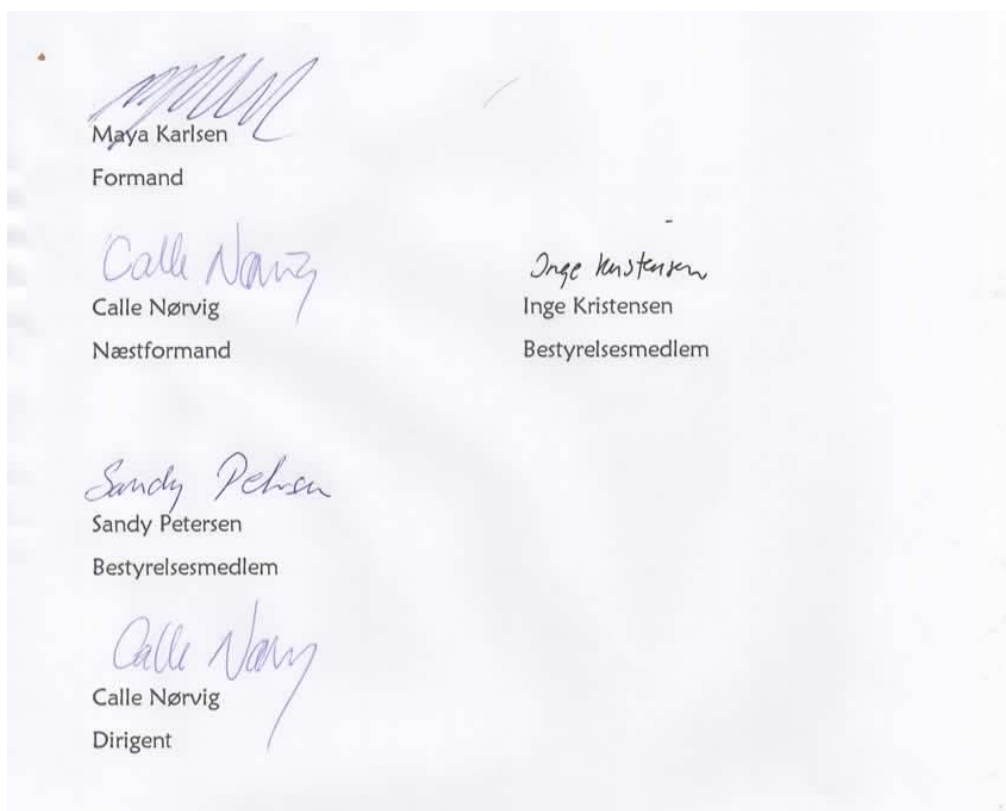 Maya Karlsen
Formand
Calle Nørvig
Calle Nørvig
Næstformand
Inge Kristensen
Inge Kristensen
Bestyrelsesmedlem
Sandy Petersen
Sandy Petersen
Bestyrelsesmedlem
Calle Nørvig
Calle Nørvig
Dirigent